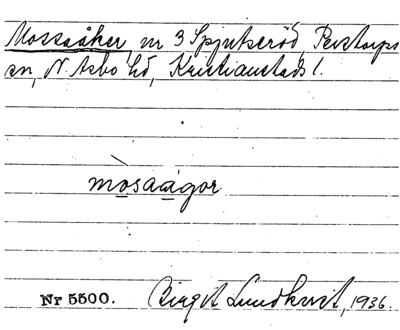 Mossaåker, nr 3 Spjutseröd, Perstorps
sn, N. Åsbo hd, Kristianstads l.
mòsaågor
Nr 5500. Birgit Lundkvist, 1936.